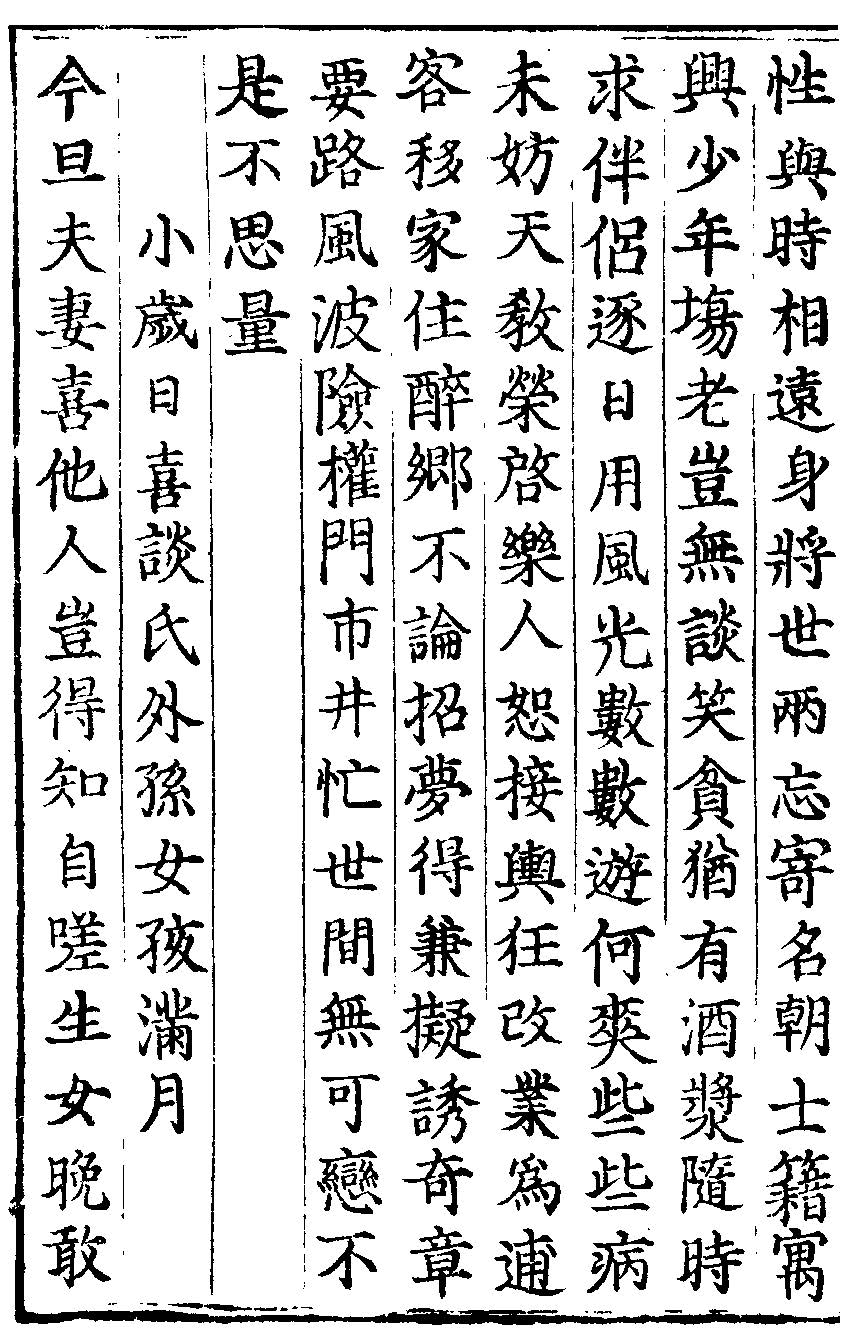 性與時相遠身將世兩忘寄名朝士籍寓
興少年塲老豈無談笑貧猶有酒漿隨時
求伴侣逐日用風光數數遊何爽些些病
未妨天教榮啓樂人恕接輿狂改業爲逋
客移家住醉鄉不論招夢得兼擬誘奇章
要路風波險權門市井忙世間無可戀不
是不思量
小歲日喜談氏外孫女孩滿月
今旦夫妻喜他人豈得知自嗟生女晚敢